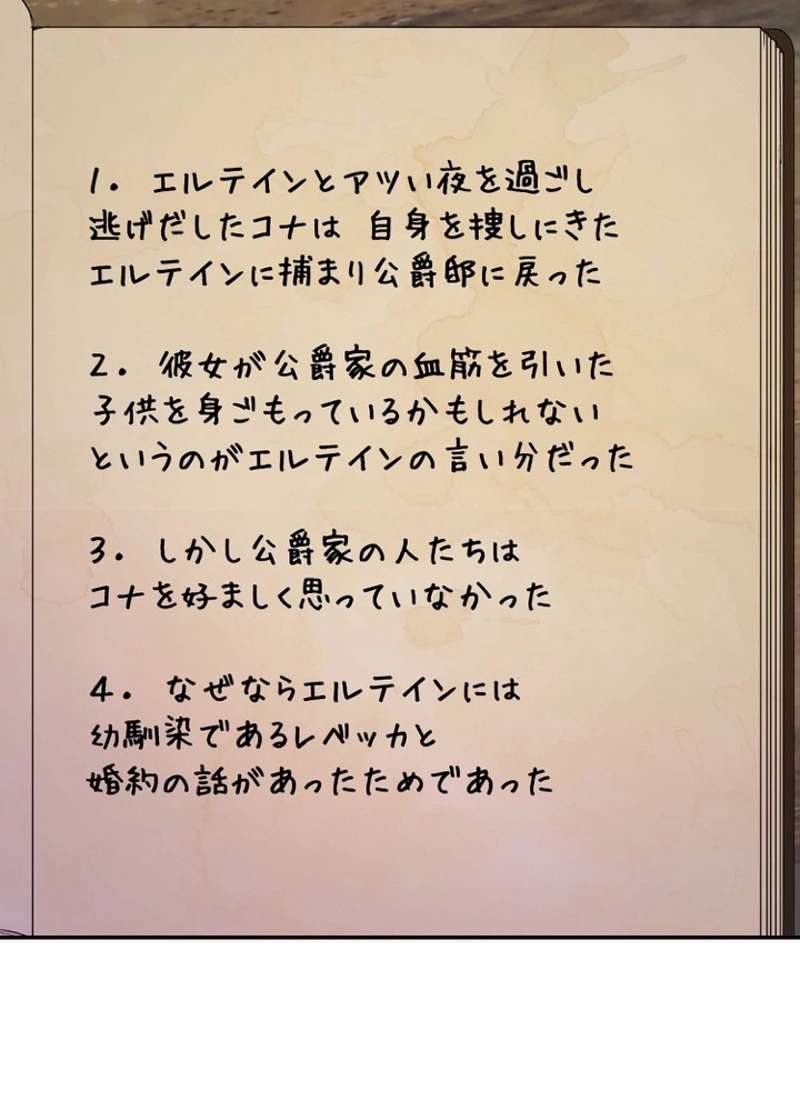 1. エルテインとアツい夜を過ごし
逃げだしたコナは 自身を捜しにきた
エルテインに捕まり公爵邸に戻った
2. 彼女が公爵家の血筋を引いた
子供を身ごもっているかもしれない
というのがエルテインの言い分だった
3. しかし公爵家の人たちは
コナを好ましく思っていなかった
4. なぜならエルテインには
幼馴染であるレベッカと
婚約の話があったためであった